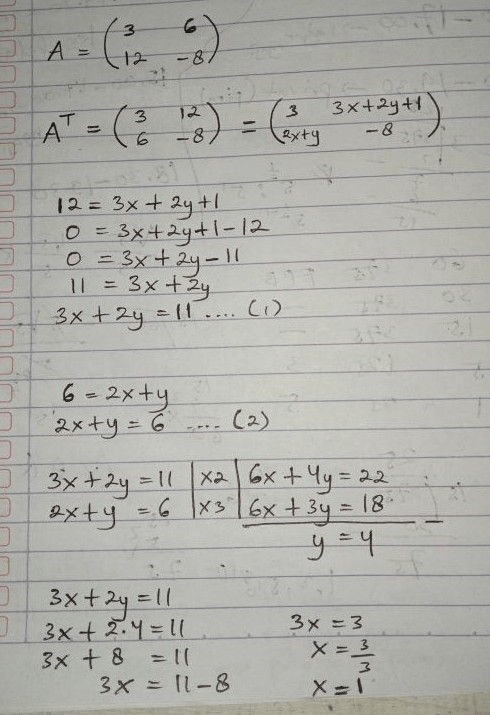 A = ( 3 6
12 -8 )
A^T = ( 3 12 ) = ( 3 3x+2y+1 )
( 6 -8 ) ( 2x+y -8 )
12 = 3x + 2y+1
0 = 3x+2y+1-12
0 = 3x+2y-11
11 = 3x+2y
3x+2y = 11 .... (1)
6 = 2x+y
2x+y = 6 .... (2)
3x+2y = 11 | x2 | 6x+4y = 22
2x+y = 6 | x3 | 6x+3y = 18 -
y = 4
3x+2y = 11
3x+2.4 = 11
3x + 8 = 11
3x = 11-8
3x = 3
x = 3/3
x = 1